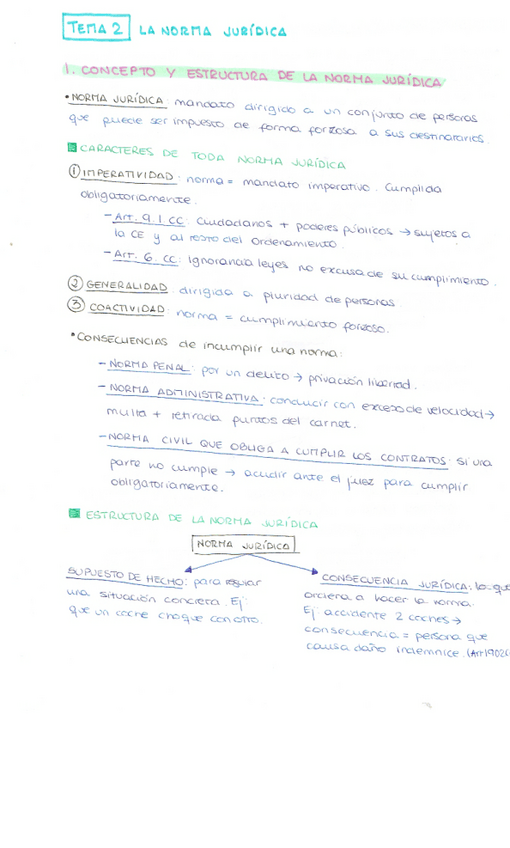 TEMA 2 LA NORMA JURÍDICA
1. CONCEPTO Y ESTRUCTURA DE LA NORMA JURÍDICA
• NORMA JURÍDICA: mandato dirigido a un conjunto de personas
que puede ser impuesto de forma forzosa a sus destinatarios.
CARACTERES DE TODA NORMA JURÍDICA
① IMPERATIVIDAD: norma = mandato imperativo. Cumplida
obligatoriamente.
- Art. 9.1 CC: Ciudadanos + poderes públicos → sujetos a
la CE y al resto del ordenamiento.
- Art. 6. CC: Ignorancia leyes no excusa de su cumplimiento.
② GENERALIDAD: dirigida a pluridad de personas.
③ COACTIVIDAD: norma = cumplimiento forzoso.
• CONSECUENCIAS de incumplir una norma:
- NORMA PENAL: por un delito → privación libertad.
- NORMA ADMINISTRATIVA: conducir con exceso de velocidad →
multa + retirada puntos del carnet.
- NORMA CIVIL QUE OBLIGA A CUMPLIR LOS CONTRATOS: Si una
parte no cumple → acudir ante el juez para cumplir
obligatoriamente.
ESTRUCTURA DE LA NORMA JURÍDICA
NORMA JURÍDICA
SUPUESTO DE HECHO: para regular
una situación concreta. Ej:
que un coche choque con otro.
CONSECUENCIA JURÍDICA: lo que
ordena a hacer la norma.
Ej: accidente 2 coches →
consecuencia = persona que
causa daño indemnice. (Art 1902